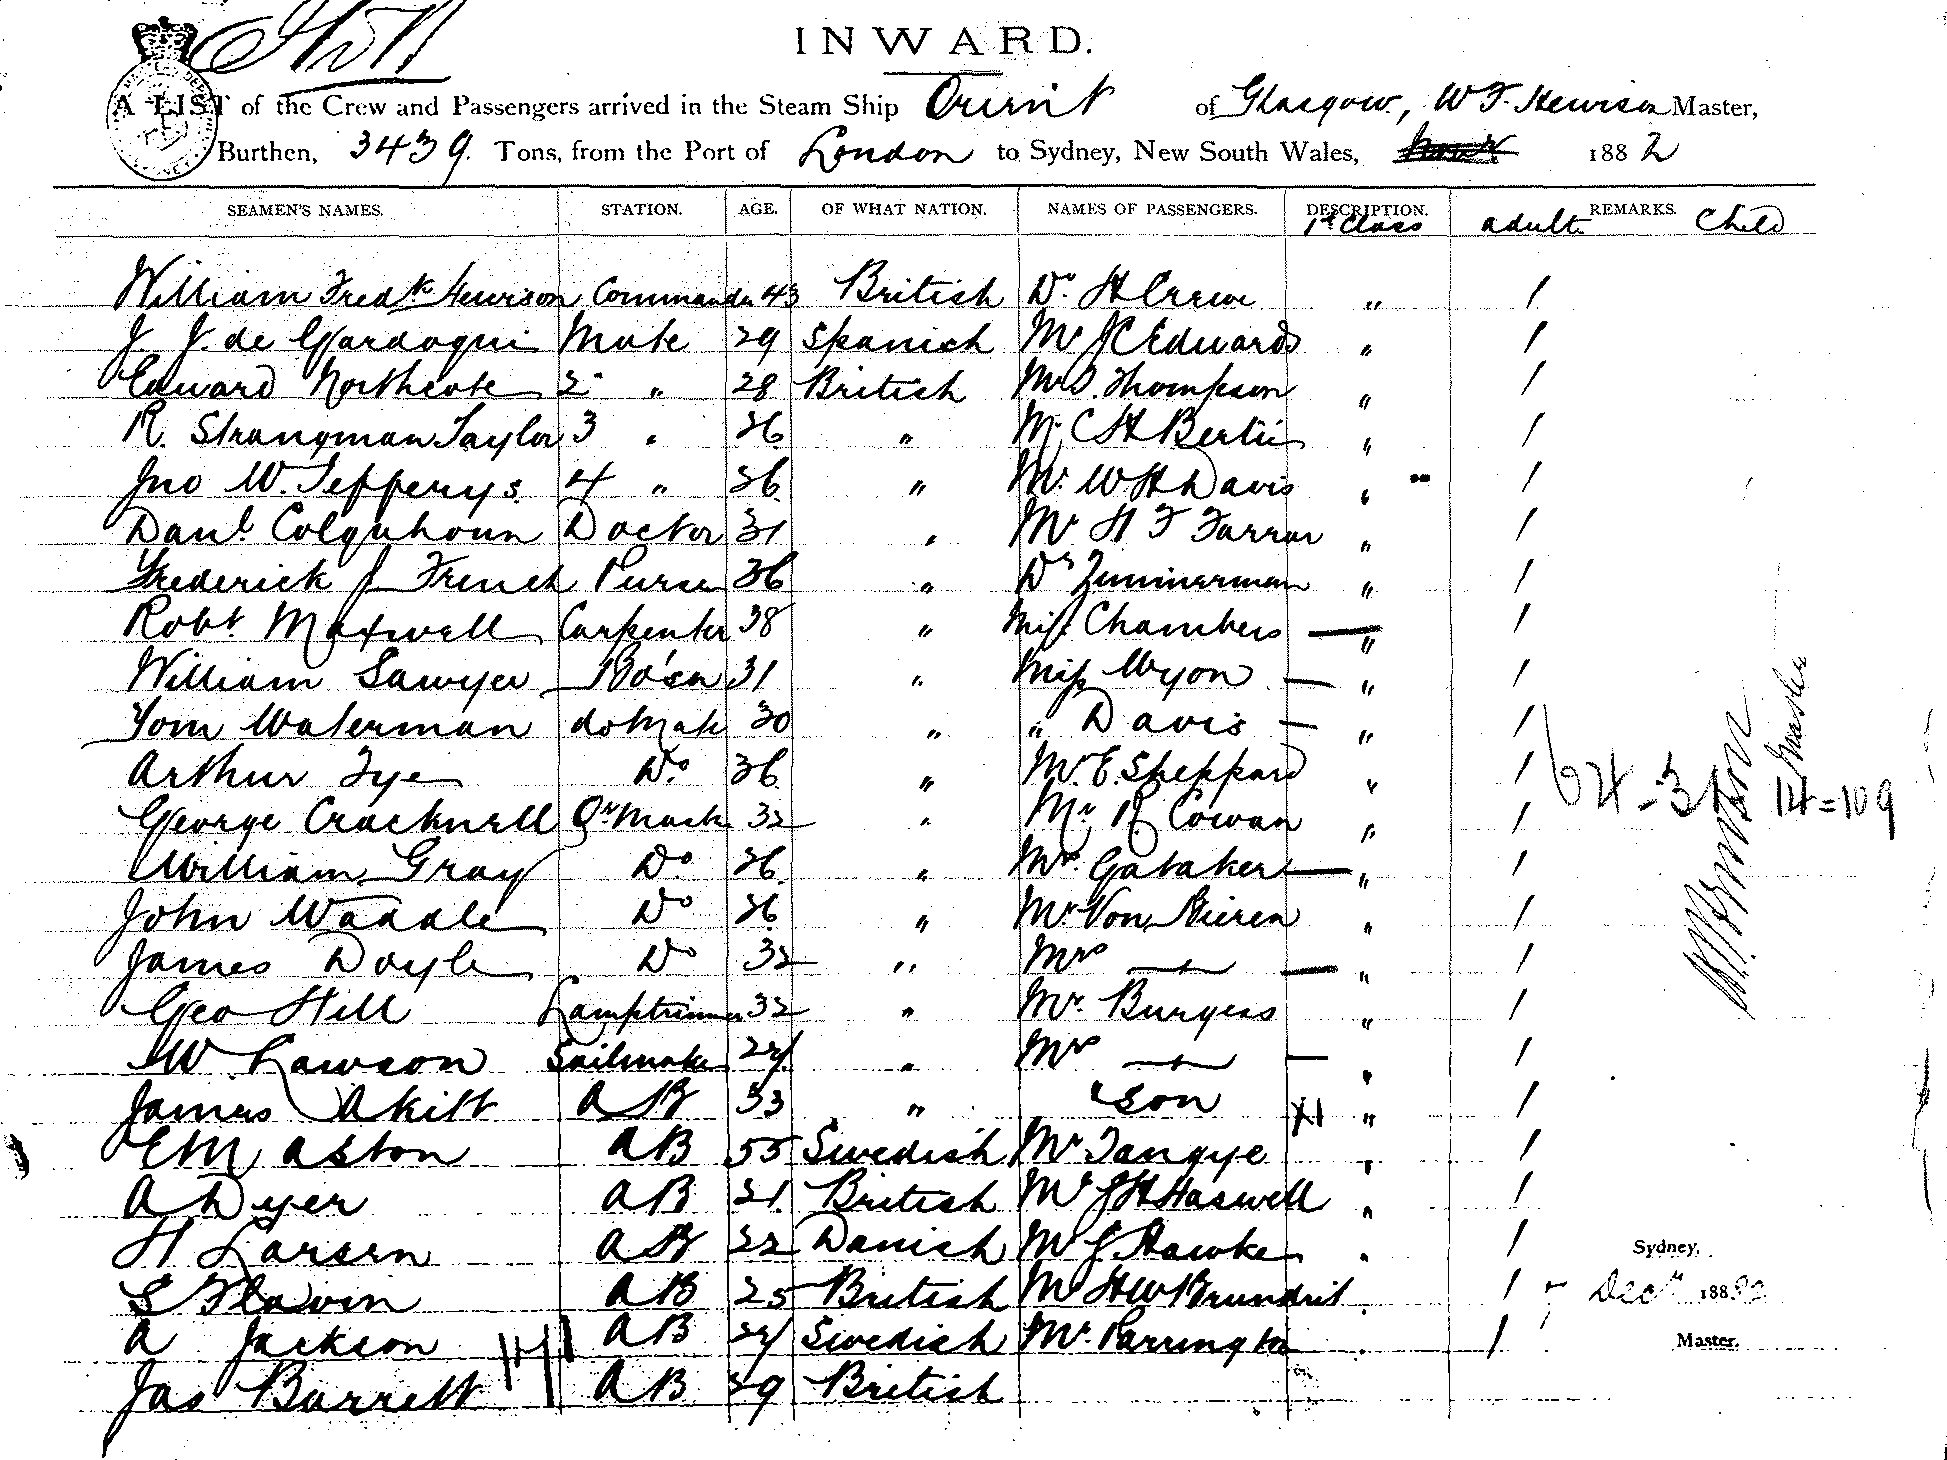 INWARD.
A LIST of the Crew and Passengers arrived in the Steam Ship Orient of Glasgow, W F. Hewison Master,
Burthen, 3439 Tons, from the Port of London to Sydney, New South Wales, 1882
SEAMEN'S NAMES. STATION. AGE. OF WHAT NATION. NAMES OF PASSENGERS. DESCRIPTION. REMARKS.
1st Class adults Child
William Fredk Hewison Commander 43 British Dr. H Crewe " 1
J J. de Gardoqui Mate 29 Spanish Mr J C Edwards " 1
Edward Northcote 2 " 28 British Mr D. Thompson " 1
R. Strangman Taylor 3 " 26 " Mr C H Bertie " 1
Jno W. Jefferys 4 " 26 " Mr. W H Davis " 1
Danl. Colquhoun Doctor 31 " Mr H F Farrar " 1
Frederick J French Purser 36 " Dr Zimmerman " 1
Robt Maxwell Carpenter 38 " Miss Chambers — " 1
William Sawyer Bo'sn 31 " Miss Wyon — " 1
Tom Waterman do Mate 30 " " Davis — " 1
Arthur Tye Do. 36 " Mr. E. Sheppard " 1
George Cracknell Qr Mastr 32 " Mr R Cowan " 1
64 - 3 14 = 109
William Gray Do 26 " Mrs. Gataker — " 1
John Waddle Do 26 " Mr Von Bieren " 1
James Doyle Do 32 " Mrs — — " 1
Geo Hill Lamptrimmer 32 " Mr. Burgess " 1
W. Lawson Sailmaker 24 " Mrs — — " 1
James Akitt AB 33 " " son " 1
E M Aston AB 55 Swedish Mr Tangye " 1
A Dyer AB 21 British Mr J H Haswell " 1
H Larsen AB 22 Danish Mr J. Hawke " 1
Sydney,
S Flavin AB 25 British Mr H W Brundrit " 1
Decr 1882
A Jackson AB 24 Swedish Mr. Parrington " 1
Master.
Jas Barrett AB 29 British
W. F. Hewison
Master